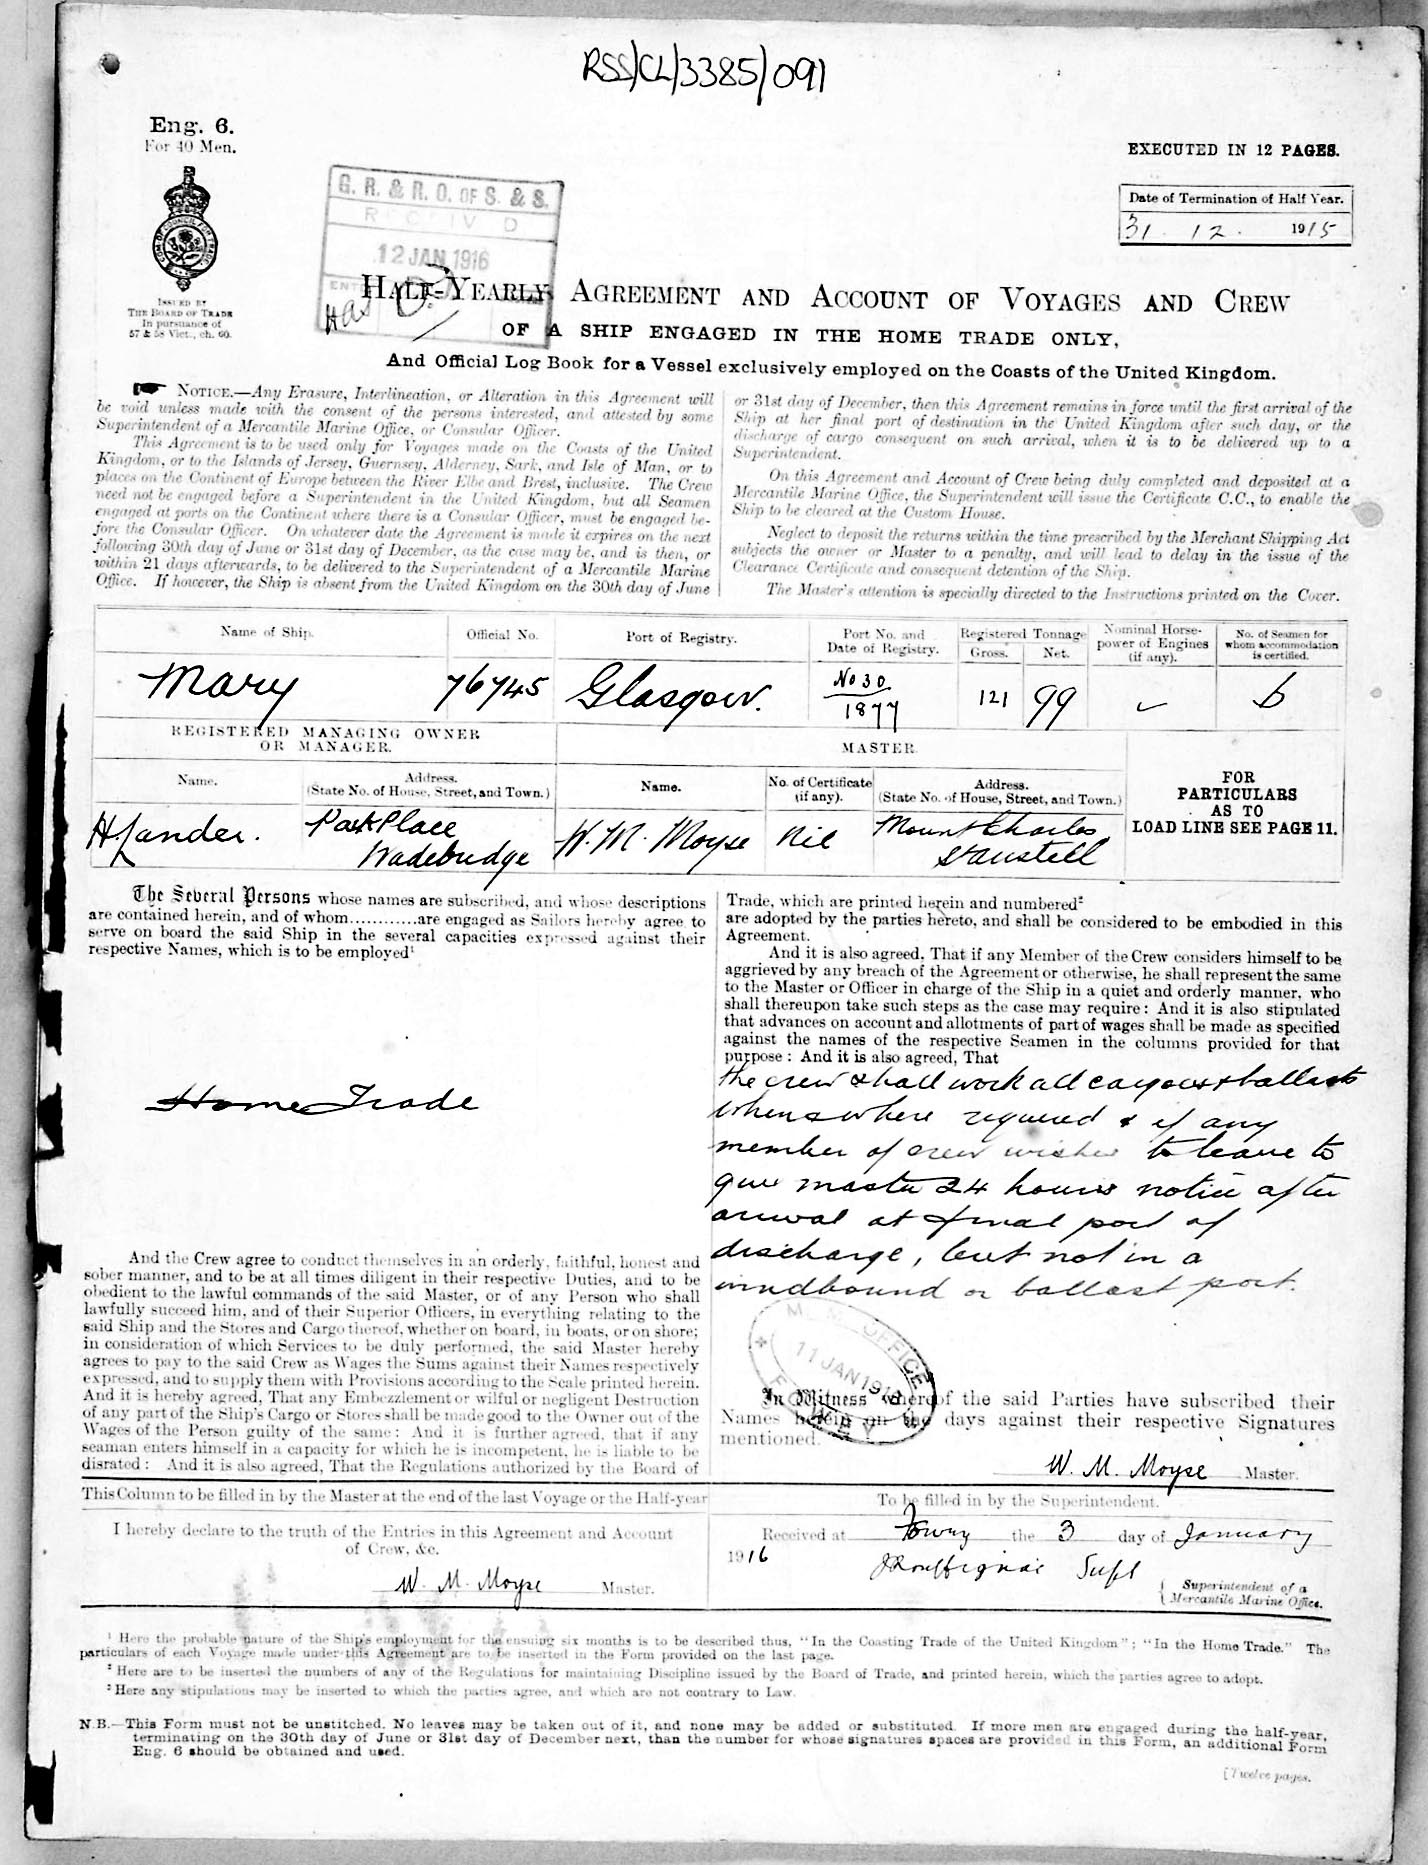 RSS/CL/3385/091
Eng. 6.
For 40 Men.
EXECUTED IN 12 PAGES.
COM. OF COUNCIL FOR TRADE
ISSUED BY
THE BOARD OF TRADE
In pursuance of
57 & 58 Vict., ch. 60.
G. R. & R. O. OF S. & S.
RECEIVED
12 JAN 1916
Date of Termination of Half Year.
31. 12. 1915
HALF-YEARLY AGREEMENT AND ACCOUNT OF VOYAGES AND CREW
OF A SHIP ENGAGED IN THE HOME TRADE ONLY,
And Official Log Book for a Vessel exclusively employed on the Coasts of the United Kingdom.
NOTICE.—Any Erasure, Interlineation, or Alteration in this Agreement will
be void unless made with the consent of the persons interested, and attested by some
Superintendent of a Mercantile Marine Office, or Consular Officer.
This Agreement is to be used only for Voyages made on the Coasts of the United
Kingdom, or to the Islands of Jersey, Guernsey, Alderney, Sark, and Isle of Man, or to
places on the Continent of Europe between the River Elbe and Brest, inclusive. The Crew
need not be engaged before a Superintendent in the United Kingdom, but all Seamen
engaged at ports on the Continent where there is a Consular Officer, must be engaged be-
fore the Consular Officer. On whatever date the Agreement is made it expires on the next
following 30th day of June or 31st day of December, as the case may be, and is then, or
within 21 days afterwards, to be delivered to the Superintendent of a Mercantile Marine
Office. If however, the Ship is absent from the United Kingdom on the 30th day of June
or 31st day of December, then this Agreement remains in force until the first arrival of the
Ship at her final port of destination in the United Kingdom after such day, or the
discharge of cargo consequent on such arrival, when it is to be delivered up to a
Superintendent.
On this Agreement and Account of Crew being duly completed and deposited at a
Mercantile Marine Office, the Superintendent will issue the Certificate C.C., to enable the
Ship to be cleared at the Custom House.
Neglect to deposit the returns within the time prescribed by the Merchant Shipping Act
subjects the owner or Master to a penalty, and will lead to delay in the issue of the
Clearance Certificate and consequent detention of the Ship.
The Master's attention is specially directed to the Instructions printed on the Cover.
Name of Ship. Official No. Port of Registry. Port No. and Date of Registry. Registered Tonnage Gross. Net. Nominal Horse-power of Engines (if any). No. of Seamen for whom accommodation is certified.
Mary 76745 Glasgow. No 30 1877 121 99 6
REGISTERED MANAGING OWNER
OR MANAGER.
MASTER.
Name. Address. (State No. of House, Street, and Town.) Name. No. of Certificate (if any). Address. (State No. of House, Street, and Town.)
FOR
PARTICULARS
AS TO
LOAD LINE SEE PAGE 11.
H Lander. Park Place Wadebridge W. M. Moyse Nil Mount Charles St Austell
The Several Persons whose names are subscribed, and whose descriptions
are contained herein, and of whom............are engaged as Sailors hereby agree to
serve on board the said Ship in the several capacities expressed against their
respective Names, which is to be employed¹
Home Trade
And the Crew agree to conduct themselves in an orderly, faithful, honest and
sober manner, and to be at all times diligent in their respective Duties, and to be
obedient to the lawful commands of the said Master, or of any Person who shall
lawfully succeed him, and of their Superior Officers, in everything relating to the
said Ship and the Stores and Cargo thereof, whether on board, in boats, or on shore;
in consideration of which Services to be duly performed, the said Master hereby
agrees to pay to the said Crew as Wages the Sums against their Names respectively
expressed, and to supply them with Provisions according to the Scale printed herein.
And it is hereby agreed, That any Embezzlement or wilful or negligent Destruction
of any part of the Ship's Cargo or Stores shall be made good to the Owner out of the
Wages of the Person guilty of the same: And it is further agreed, that if any
seaman enters himself in a capacity for which he is incompetent, he is liable to be
disrated: And it is also agreed, That the Regulations authorized by the Board of
Trade, which are printed herein and numbered²
are adopted by the parties hereto, and shall be considered to be embodied in this
Agreement.
And it is also agreed, That if any Member of the Crew considers himself to be
aggrieved by any breach of the Agreement or otherwise, he shall represent the same
to the Master or Officer in charge of the Ship in a quiet and orderly manner, who
shall thereupon take such steps as the case may require: And it is also stipulated
that advances on account and allotments of part of wages shall be made as specified
against the names of the respective Seamen in the columns provided for that
purpose: And it is also agreed, That
the crew shall work all cargoes & ballasts
when & where required & if any
member of crew wishes to leave to
give master 24 hours notice after
arrival at final port of
discharge, but not in a
windbound or ballast port.
M. M. OFFICE
11 JAN 1916
FOWEY
In Witness whereof the said Parties have subscribed their
Names herein on the days against their respective Signatures
mentioned.
W. M. Moyse Master.
This Column to be filled in by the Master at the end of the last Voyage or the Half-year
I hereby declare to the truth of the Entries in this Agreement and Account
of Crew, &c.
W. M. Moyse Master.
To be filled in by the Superintendent.
Received at Fowey the 3 day of January
1916
Supt
Superintendent of a
Mercantile Marine Office.
¹ Here the probable nature of the Ship's employment for the ensuing six months is to be described thus, "In the Coasting Trade of the United Kingdom"; "In the Home Trade." The
particulars of each Voyage made under this Agreement are to be inserted in the Form provided on the last page.
² Here are to be inserted the numbers of any of the Regulations for maintaining Discipline issued by the Board of Trade, and printed herein, which the parties agree to adopt.
³ Here any stipulations may be inserted to which the parties agree, and which are not contrary to Law.
N.B.—This Form must not be unstitched. No leaves may be taken out of it, and none may be added or substituted. If more men are engaged during the half-year,
terminating on the 30th day of June or 31st day of December next, than the number for whose signatures spaces are provided in this Form, an additional Form
Eng. 6 should be obtained and used.
[Twelve pages.